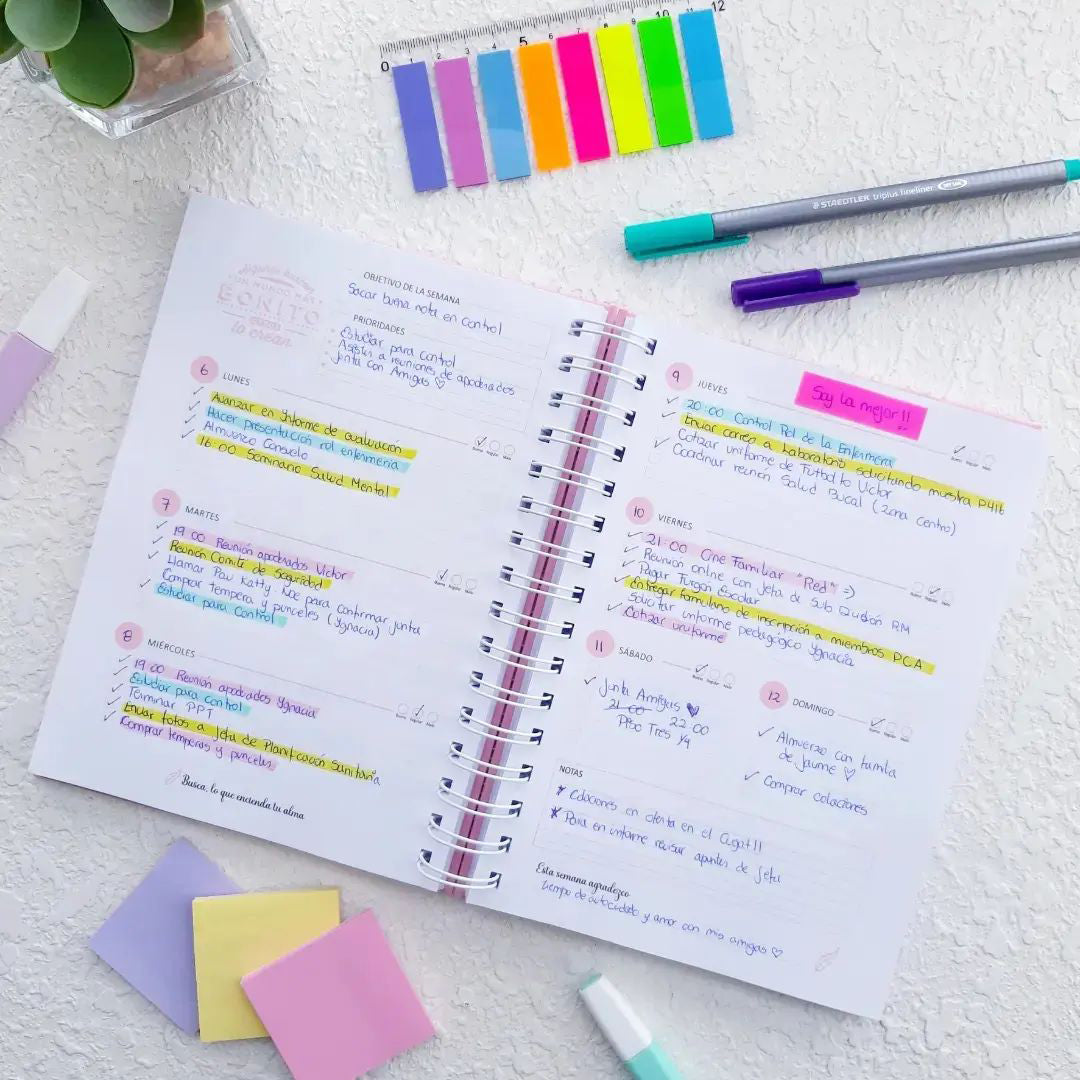 0 1 2 3 4 5 6 7 8 9 10 11 12
STAEDTLER triplus fineliner
UN MUNDO MÁS
BONITO
lo crean
OBJETIVO DE LA SEMANA
Sacar buena nota en Control
PRIORIDADES
Estudiar para control
Asistir a reuniones de apoderados
Junta con Amigas ♡
6 LUNES
Avanzar en Informe de evaluación
Hacer presentación rol enfermeria
Almuerzo Consuelo
16:00 Seminario Salud Mental
Bueno Regular Malo
7 MARTES
19:00 Reunión apoderados Victor
Reunión Comité de Seguridad
Llamar Pau Katty, Noe para confirmar junta
Comprar tempera y punceles (Ygnacia)
Estudiar para control
Bueno Regular Malo
8 MIERCOLES
19:00 Reunión apoderados Ygnacia
Estudiar para control
Terminar PPT
Enviar fotos a jefa de Planificación Sanitaria
Comprar temperas y punceles
Bueno Regular Malo
Busca, lo que encienda tu alma
9 JUEVES
Soy la mejor!!
20:00 Control Rol de la Enfermera
Enviar correo a Laboratorio solicitando muestra P416
Cotizar uniforme de Futbolito Victor
Coordinar reunión Salud Bucal (zona centro)
Bueno Regular Malo
10 VIERNES
21:00 Cine Familiar "Red" =)
Reunión online con Jefa de Sub División RM
Pagar Furgón Escolar
Entregar formulario de inscripción a miembros PCA
Solicitar informe pedagógico Ygnacia
Cotizar uniforme
Bueno Regular Malo
11 SÁBADO
Junta Amigas
21:00 22:00
Piso Tres 1/4
Bueno Regular Malo
12 DOMINGO
Almuerzo con familia
de Jaume ♡
Comprar colaciones
Bueno Regular Malo
NOTAS
* Colaciones en oferta en el
* Para en informe revisar apuntes de jefa
Esta semana agradezco
tiempo de autocuidado y amor con mis amigas ♡